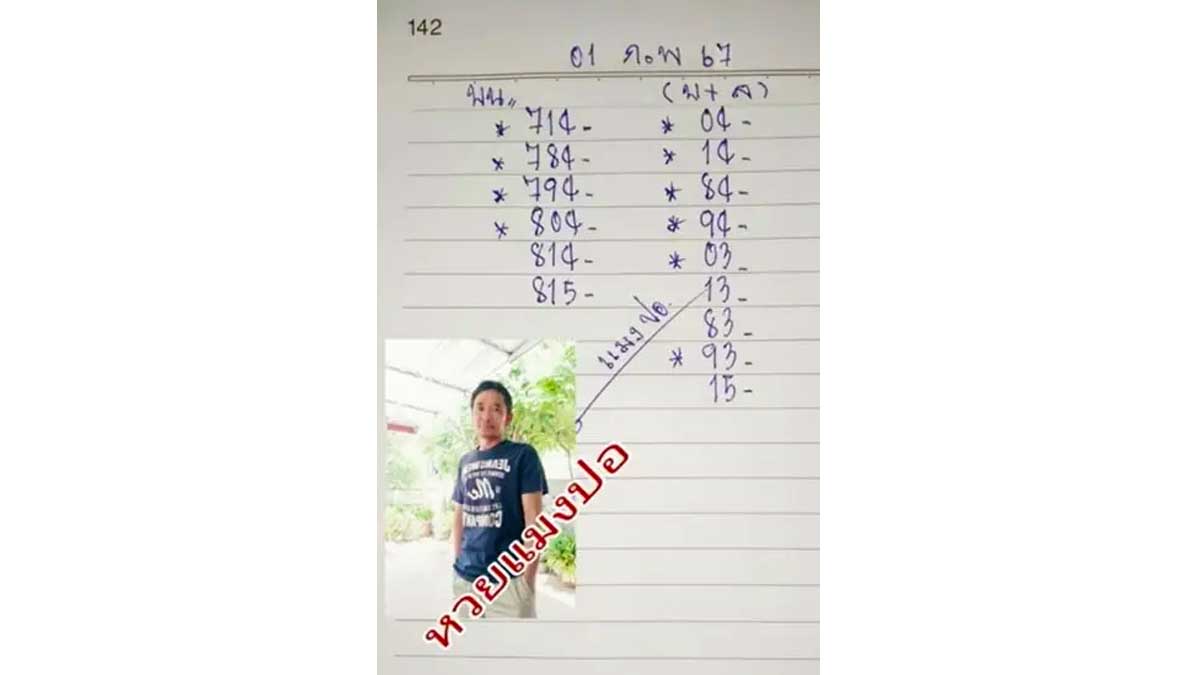 142
01 ก.พ 67
บน,, (บ+ล)
* 714- * 04-
* 784- * 14-
* 794- * 84-
* 804- * 94-
814- * 03-
815- 13-
83-
* 93-
15-
แมงปอ
JEANS
Me
COMPANY
หวยแมงปอ